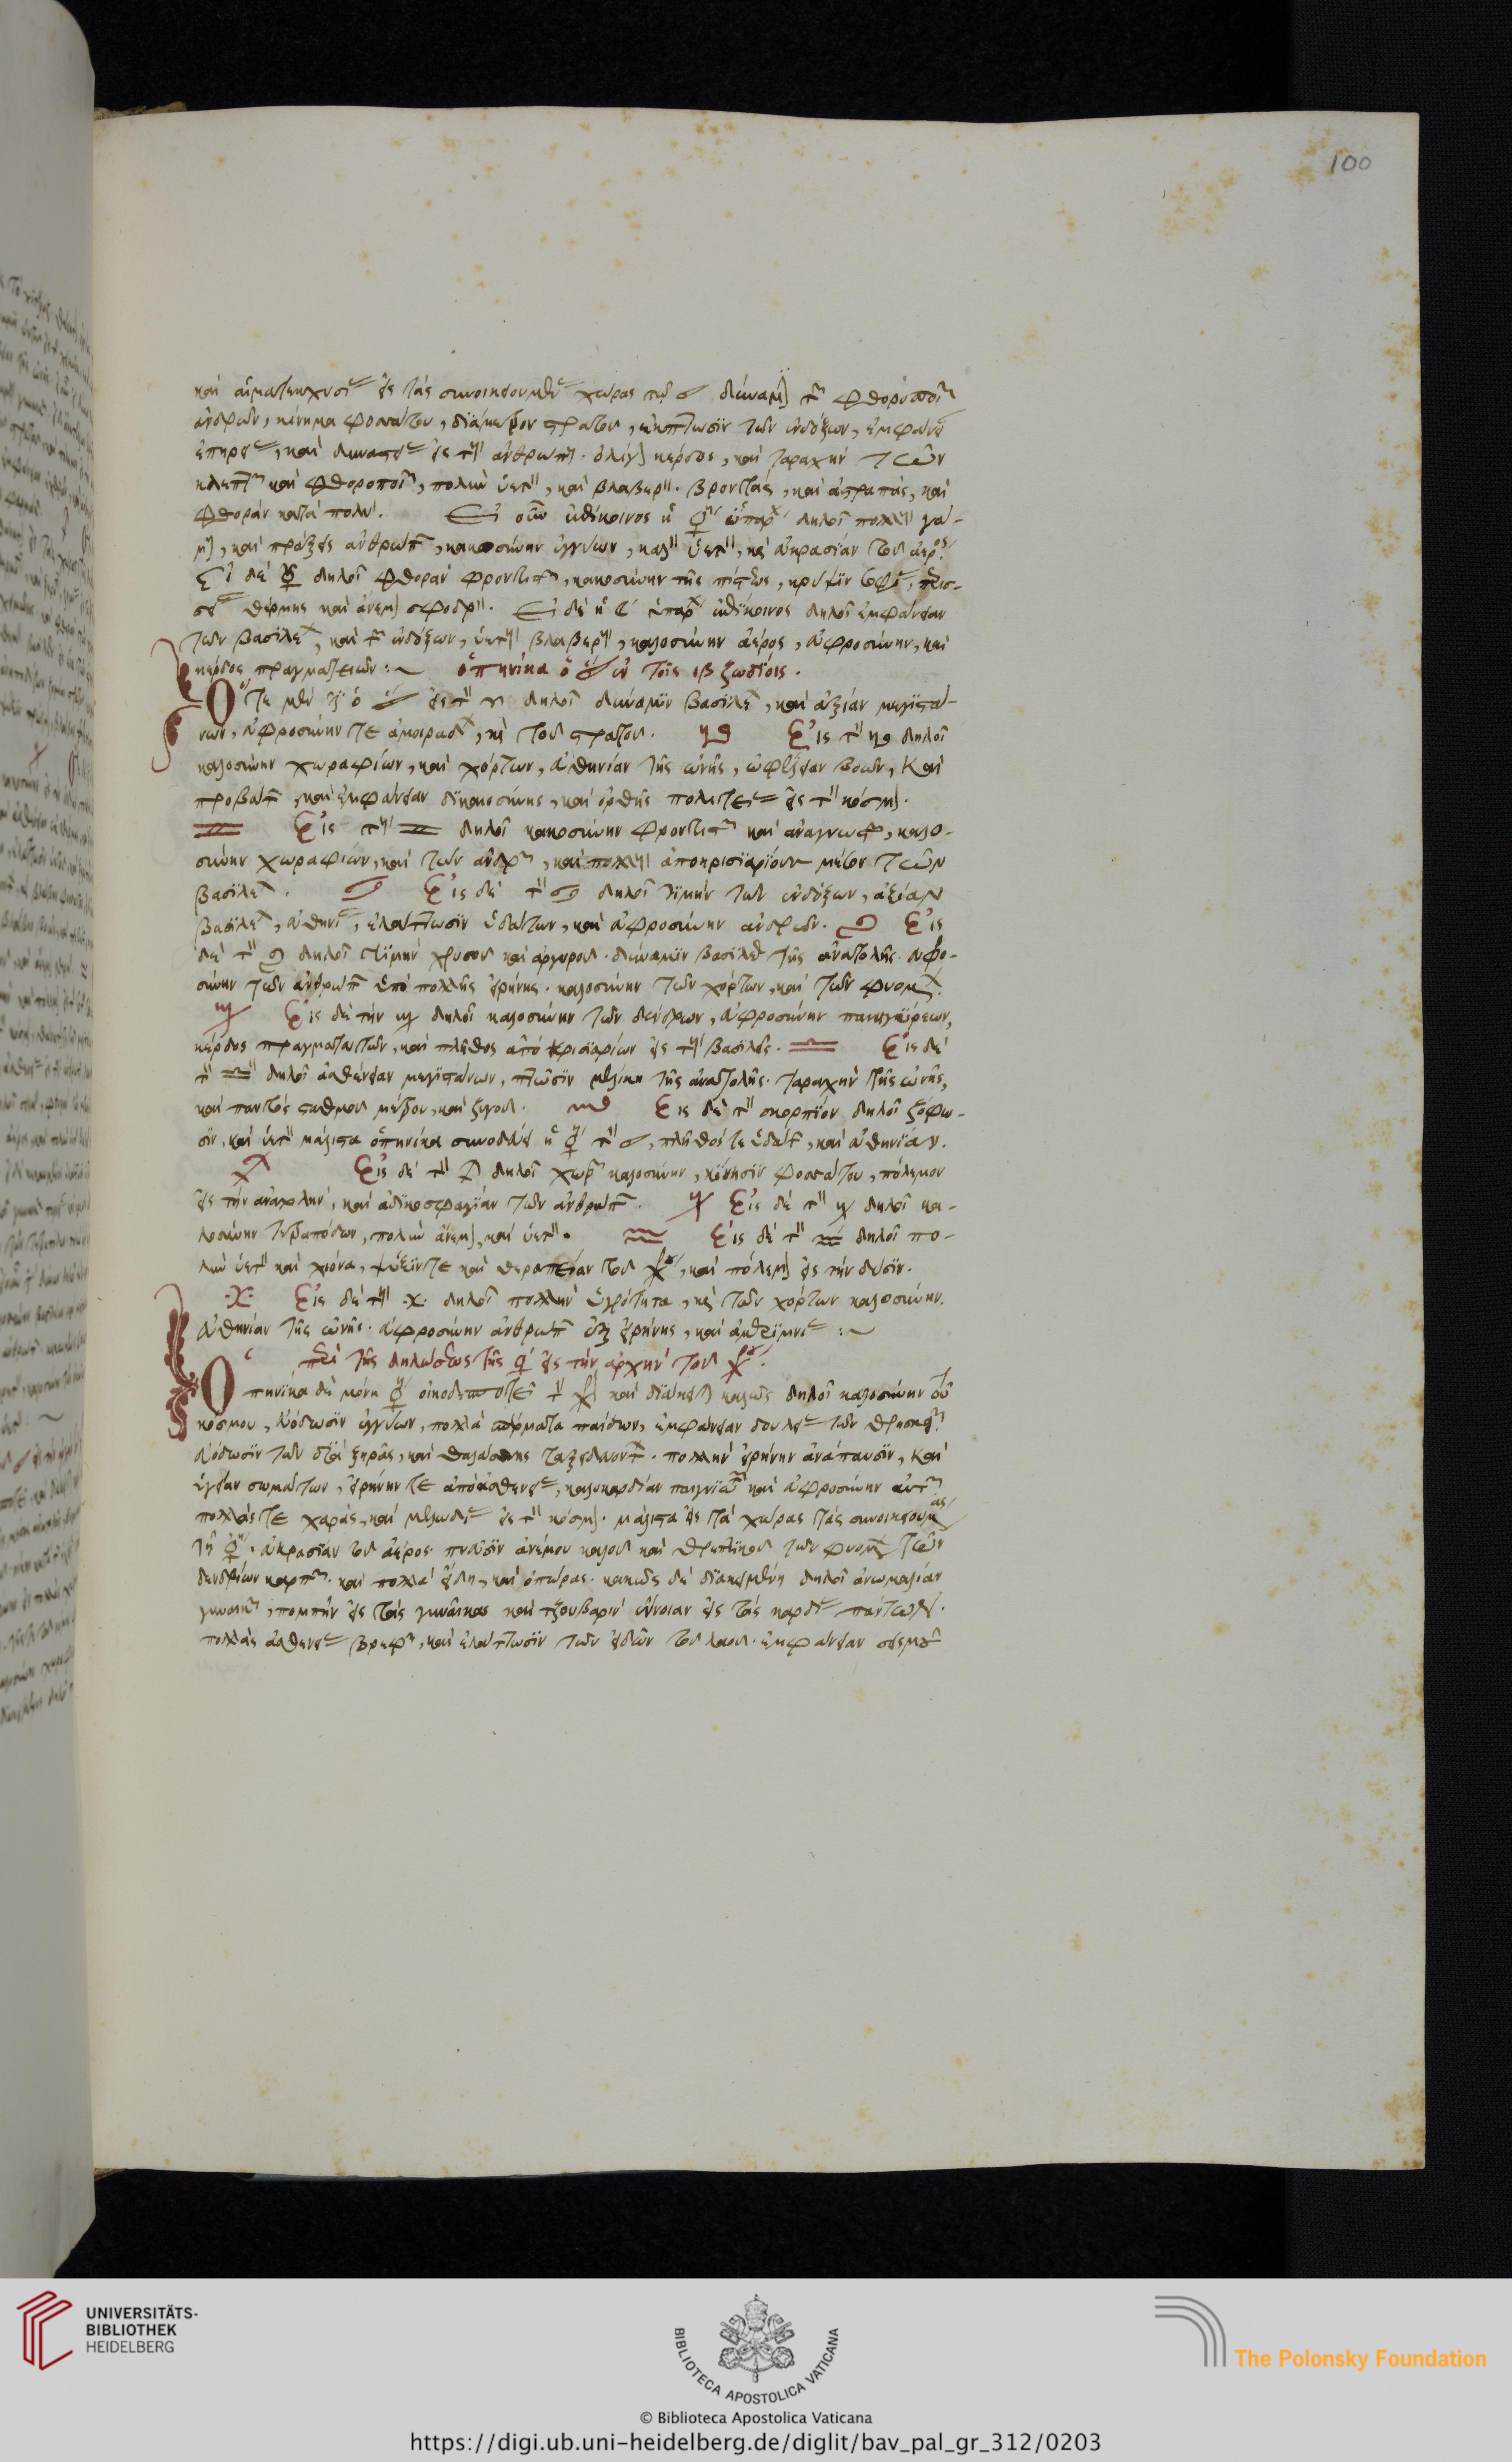 100
καὶ αἱματεκχυσί εἰς τὰς συνοικουμεν χώρας τῷ ♂ δύναμ τ φθοροποι
ἀνδρῶν, κίνημα φοσάτου, διάμεσον στρατοῦ, ἔκπτωσιν τῶν ἐνδόξων, ἐμφαν
καὶ δυναστ εἰς τ ἀνθρωπ. ὀλίγ κέρδος, καὶ ταραχὴν τῶν
κλεπτ καὶ φθοροποι, πολὺν ὑετ, καὶ βλαβερ. βροντάς, καὶ ἀστραπάς, καὶ
φθορὰν κατὰ πολύ. Εἰ οὖν ἐπίκοινος ἡ ♀ ὑπαρ δηλοῖ πολλ γά-
μ, καὶ πράξεις ἀνθρώπ, κακοσύνην ἐγγύων, καλ ὑετ, κὲ εὐκρασίαν τοῦ ἀέρος
Εἰ δὲ ☿ δηλοῖ φθορὰν φροντιστ, κακοσύνην τῆς πίστεως, κρύψιν σοφί, περισ-
σ θέρμης καὶ ἀνέμ σφοδρ. Εἰ δὲ ἡ ☾ ὑπαρ ἐπίκοινος δηλοῖ ἐμφάνειαν
τῶν βασιλε, καὶ τ ἐνδόξων, ὑετ βλαβερ, καλοσύνην ἀέρος, εὐφροσύνην, καὶ
κέρδος πραγματειῶν :~ ὁπηνίκα ὁ ☉ ἐν τοῖς ιβ ζωδίοις.
Ὅτε μὲν ὁ ☉ εἰς τ ♈ δηλοῖ δύναμιν βασιλε, καὶ ἀξίαν μεγιστά-
νων, εὐφροσύνην τε, κὲ τοῦ στρατοῦ. ♉ Εἰς τ ♉ δηλοῖ
καλοσύνην χωραφίων, καὶ χόρτων, εὐθηνίαν τῆς ὠνῆς, ὠφέλειαν βοῶν, καὶ
προβάτ, καὶ ἐμφάνειαν δικαιοσύνης, καὶ ὀρθῆς πολιτεί εἰς τ κόσμ.
♊ Εἰς τ ♊ δηλοῖ κακοσύνην φροντιστ καὶ ἀναγνωστ, καλο-
σύνην χωραφίων, καὶ τῶν ἀνδρ, καὶ πολλ ἀποκρισιαρίους μέσον τῶν
βασιλε. ♋ Εἰς δὲ τ ♋ δηλοῖ τιμὴν τῶν ἐνδόξων, ἀξίαν
βασιλε, εὐθηνί, ἐλάττωσιν ὑδάτων, καὶ εὐφροσύνην ἀνδρῶν. ♌ Εἰς
δὲ τ ♌ δηλοῖ τιμὴν χρυσοῦ καὶ ἀργύρου. δύναμιν βασιλέ τῆς ἀνατολῆς. εὐφρο-
σύνην τῶν ἀνθρώπ ὑπὸ πολλῆς εἰρήνης. καλοσύνην τῶν χόρτων, καὶ τῶν φυομ.
♍ Εἰς δὲ τὴν ♍ δηλοῖ καλοσύνην τῶν δένδρων, εὐφροσύνην πανηγύρεων,
κέρδος πραγματευτῶν, καὶ πλῆθος ἀποκρισιαρίων εἰς τ βασιλεῖς. ♎ Εἰς δὲ
τ ♎ δηλοῖ ἀσθένειαν μεγιστάνων, πτῶσιν μερικὴ τῆς ἀνατολῆς. ταραχὴν τῆς ὠνῆς,
καὶ παντὸς σταθμοῦ μέτρου, καὶ ζυγοῦ. ♏ Εἰς δὲ τ σκορπίον δηλοῖ ζόφω-
σιν, καὶ ὑετ μάλιστα ὁπηνίκα συνοδεύει ἡ ♀ τ ♂, πλῆθός τε ὑδάτ, καὶ εὐθηνίαν.
♐ Εἰς δὲ τ ♐ δηλοῖ χωρ καλοσύνην, κίνησιν φοσάτου, πόλεμον
εἰς τὴν ἀνατολήν, καὶ ἀδικοσφαγίαν τῶν ἀνθρώπ. ♑ Εἰς δὲ τ ♑ δηλοῖ κα-
λοσύνην τετραπόδων, πολὺν ἄνεμ, καὶ ὑετ. ♒ Εἰς δὲ τ ♒ δηλοῖ πο-
λὺν ὑετ καὶ χιόνα, ψύξιν τε καὶ θεραπείαν τοῦ, καὶ πόλεμ εἰς τὴν δύσιν.
♓ Εἰς δὲ τ ♓ δηλοῖ πολλὴν ὑγρότητα, κὲ τῶν χόρτων καλοσύνην.
εὐθηνίαν τῆς ὠνῆς. εὐφροσύνην ἀνθρώπ εἰρήνης, καὶ ἀμεριμνί :~
περὶ τῆς δηλώσεως τῆς ♀ εἰς τὴν ἀρχὴν τοῦ
Ὁπηνίκα δὲ μόνη ♀ οἰκοδεσποτεῖ τ καὶ διάκειται καλῶς δηλοῖ καλοσύνην τοῦ
κόσμου, εὐόδωσιν ἐγγύων, πολλὰ σπέρματα παίδων, ἐμφάνειαν τῶν θρησκ
εὐόδωσιν τῶν διὰ ξηρᾶς, καὶ θαλάσσης ταξιδευόντ. πολλὴν εἰρήνην ἀνάπαυσιν, καὶ
ὑγείαν σωμάτων, εἰρήνην τε ἀπὸ ἀσθενεί, καλοκαρδίαν παιγνιωτ καὶ εὐφροσύνην αὐτ
πολλάς τε χαράς, καὶ μελωδί εἰς τ κόσμ. μάλιστα εἰς τὰ χώρας τὰς συνοικουμας
τῇ ♀. εὐκρασίαν τοῦ ἀέρος. πνεῦσιν ἀνέμου καλοῦ καὶ θρεπτικοῦ τῶν φυομ τῶν
δενδρίων καρπ. καὶ πολλὰ εἴδη, καὶ ὀπώρας. κακῶς δὲ διακειμένη δηλοῖ ἀνωμαλίαν
γυναικ, πομπὴν εἰς τὰς γυναῖκας καὶ εἰς τὰς καρδί πάντων.
πολλὰς ἀσθενεί βρεφ, καὶ ἐλάττωσιν τῶν εἰδῶν τοῦ λαοῦ. ἐμφάνειαν σεισμ
UNIVERSITÄTS-
BIBLIOTHEK
HEIDELBERG
BIBLIOTECA APOSTOLICA VATICANA
The Polonsky Foundation
© Biblioteca Apostolica Vaticana
https://digi.ub.uni-heidelberg.de/diglit/bav_pal_gr_312/0203